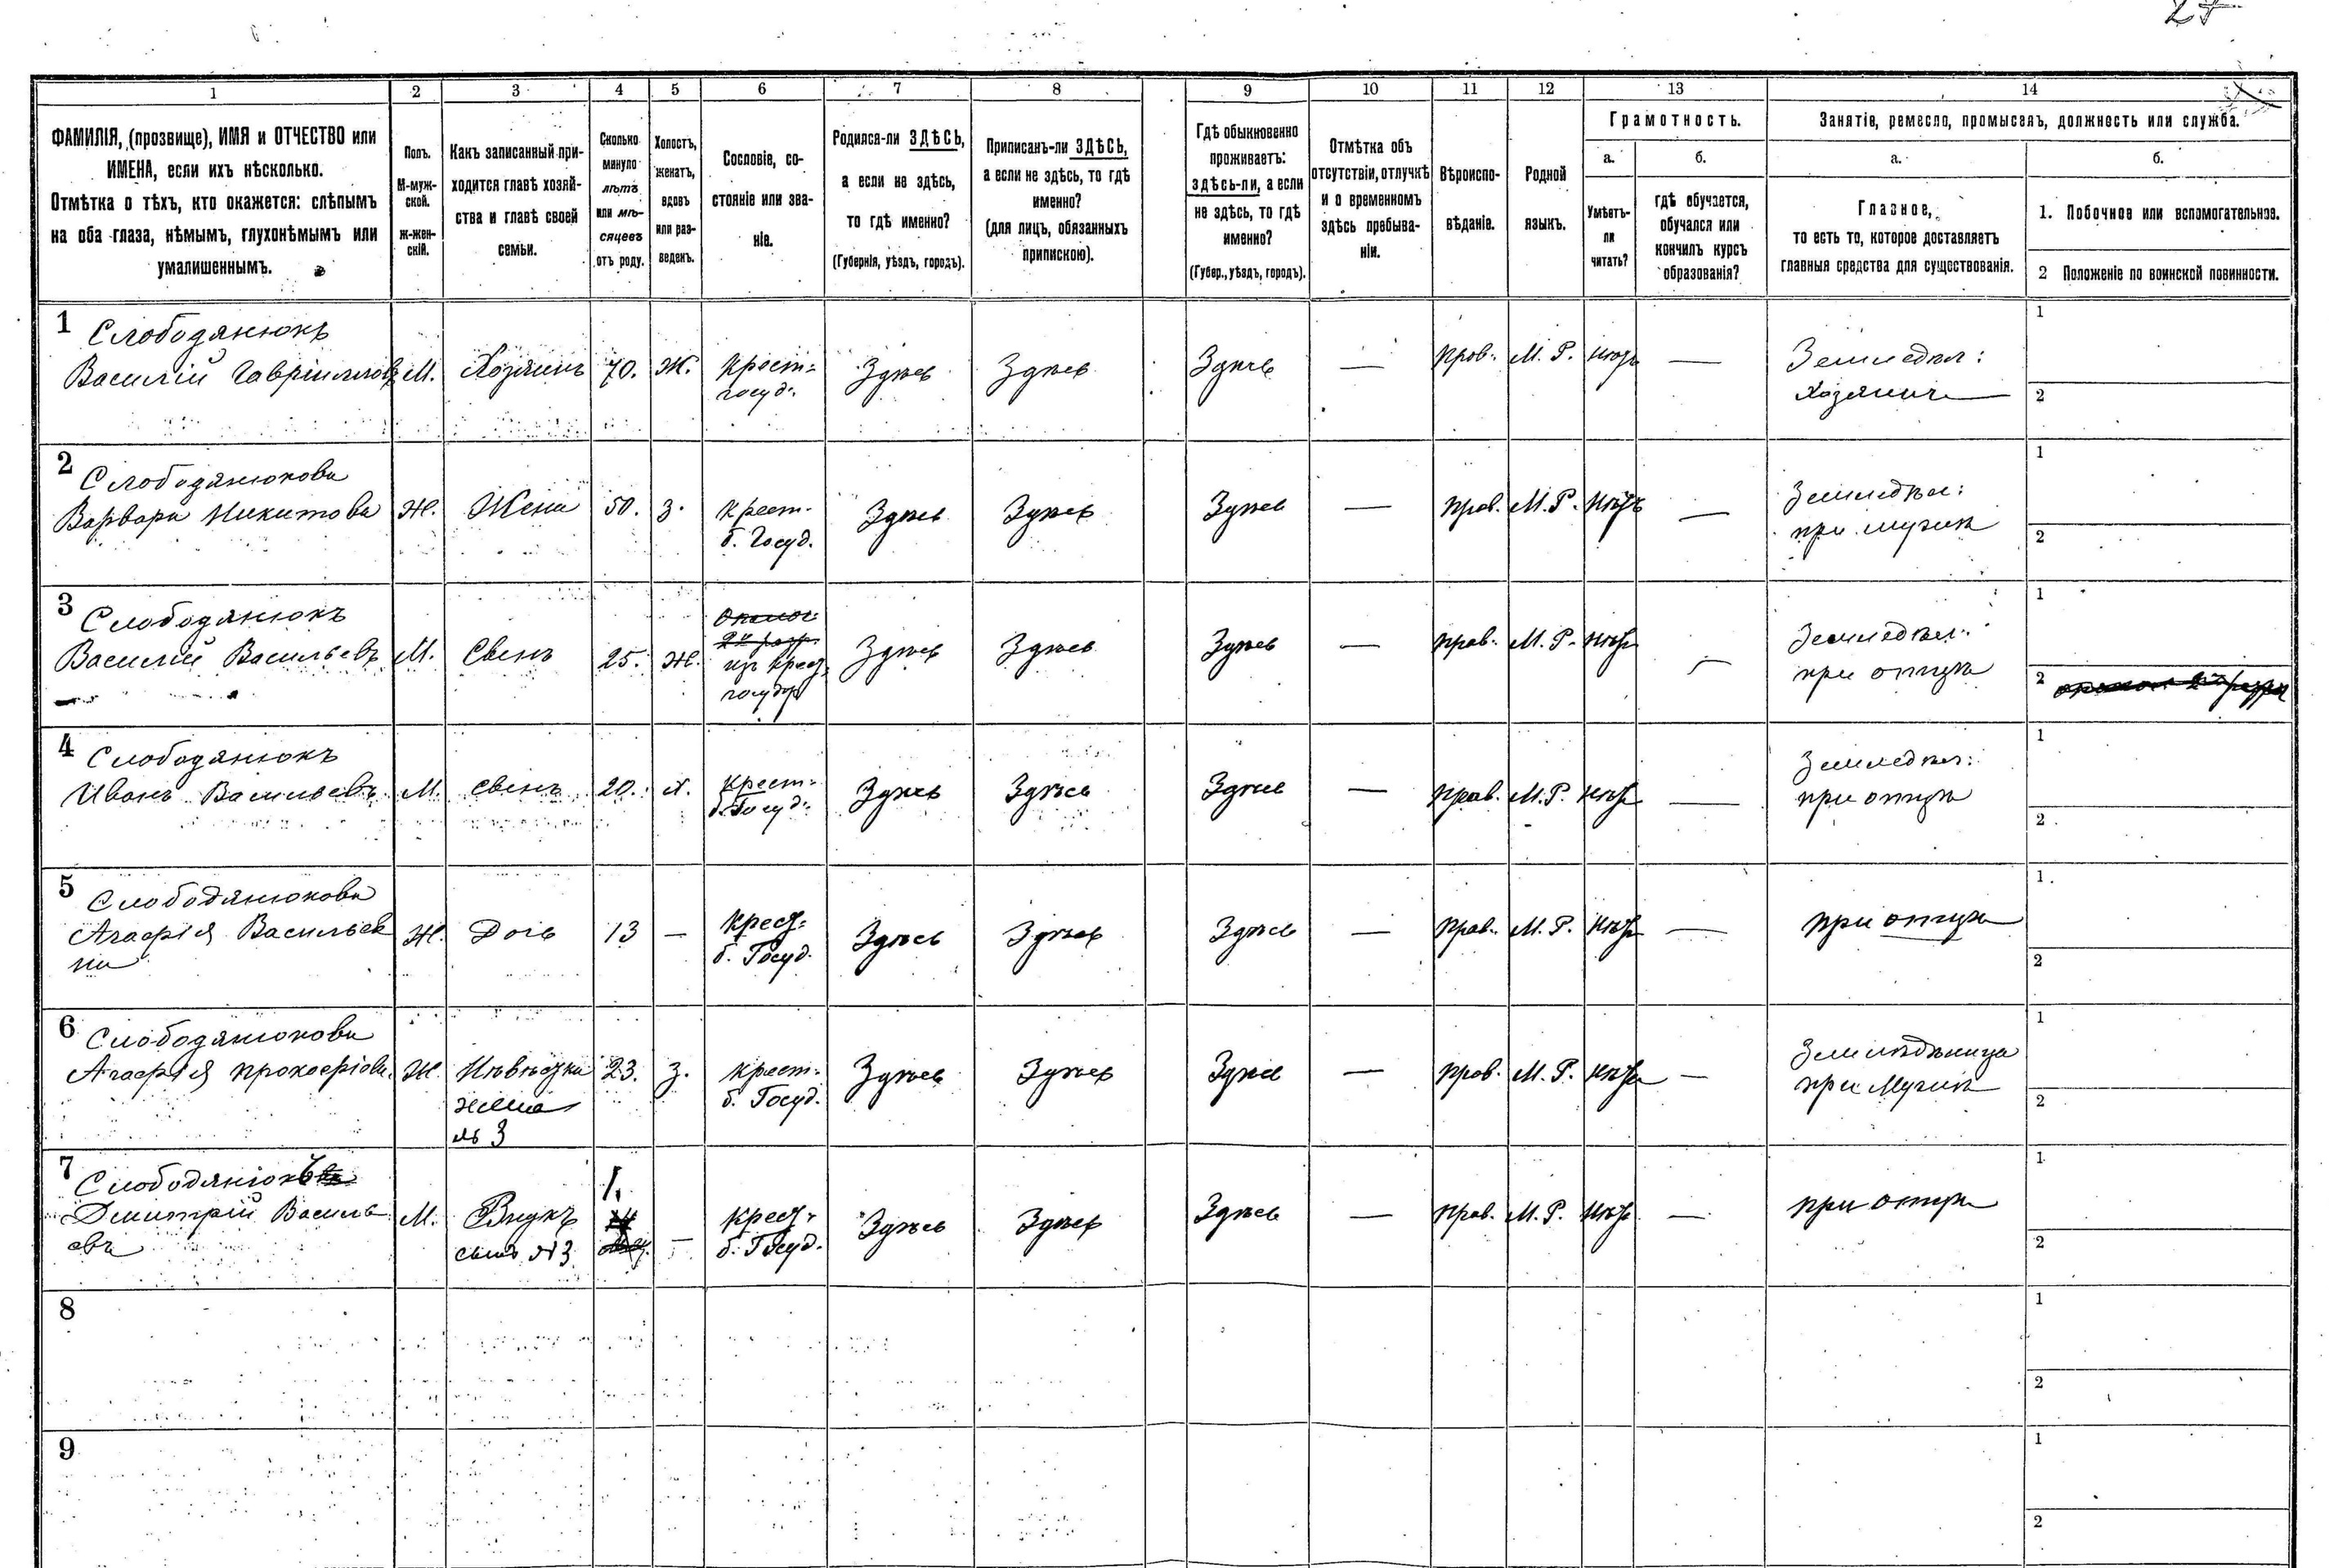 27
1 2 3 4 5 6 7 8 9 10 11 12 13 14
ФАМИЛІЯ, (прозвище), ИМЯ и ОТЧЕСТВО или
ИМЕНА, если ихъ нѣсколько.
Отмѣтка о тѣхъ, кто окажется: слѣпымъ
на оба глаза, нѣмымъ, глухонѣмымъ или
умалишеннымъ.
Полъ.
М-муж-
ской.
ж-жен-
скій.
Какъ записанный при-
ходится главѣ хозяй-
ства и главѣ своей
семьи.
Сколько
минуло
лѣтъ
или мѣ-
сяцевъ
отъ роду.
Холостъ,
женатъ,
вдовъ
или раз-
веденъ.
Сословіе, со-
стояніе или зва-
ніе.
Родился-ли ЗДѢСЬ,
а если не здѣсь,
то гдѣ именно?
(Губернія, уѣздъ, городъ).
Приписанъ-ли ЗДѢСЬ,
а если не здѣсь, то гдѣ
именно?
(для лицъ, обязанныхъ
припискою).
Гдѣ обыкновенно
проживаетъ:
здѣсь-ли, а если
не здѣсь, то гдѣ
именно?
(Губер., уѣздъ, городъ).
Отмѣтка объ
отсутствіи, отлучкѣ
и о временномъ
здѣсь пребыва-
ніи.
Вѣроиспо-
вѣданіе.
Родной
языкъ.
Грамотность.
а.
Умѣетъ-
ли
читать?
б.
гдѣ обучается,
обучался или
кончилъ курсъ
образованія?
Занятіе, ремесло, промыселъ, должность или служба.
а.
Главное,
то есть то, которое доставляетъ
главныя средства для существованія.
б.
1. Побочное или вспомогательное.
2 Положеніе по воинской повинности.
1 Слободянюкъ
Василій Гавріиловъ М. Хозяинъ 70. Ж. Крест= Здѣсь Здѣсь Здѣсь — Прав. М. Р. нѣтъ — Земледѣл:
госуд. Хозяинъ
1
2
2 Слободянюкова
Варвара Никитова Ж. Жена 50. З. Крест. Здѣсь Здѣсь Здѣсь — Прав. М. Р. Нѣтъ — Земледѣл:
б. Госуд. при мужѣ
1
2
3 Слободянюкъ
Василій Васильевъ М. Свенъ 25. Ж. из крест. Здѣсь Здѣсь Здѣсь — Прав. М. Р. нѣтъ — Земледѣл:
государ при отцѣ
1
2
4 Слободянюкъ
Иванъ Васильевъ М. Свенъ 20. х. Крест= Здѣсь Здѣсь Здѣсь — Прав. М. Р. нѣтъ — Земледѣл:
б. Госуд. при отцѣ
1
2
5 Слободянюкова
Агафія Васильев Ж. Дочь 13 — Крест= Здѣсь Здѣсь Здѣсь — Прав. М. Р. Нѣтъ — при отцѣ
на б. Госуд.
1
2
6 Слободянюкова
Агафія Прокофіова Ж. Невѣстка 23. З. Крест= Здѣсь Здѣсь Здѣсь — Прав. М. Р. нѣтъ — Земледѣлица
жена б. Госуд. при Мужѣ
№ 3
1
2
7 Слободянюкъ
Дмитрій Василь М. Внукъ 1. — Крест. Здѣсь Здѣсь Здѣсь — Прав. М. Р. Нѣтъ — при отцѣ
евъ сынъ №3 б. Госуд.
1
2
8
1
2
9
1
2